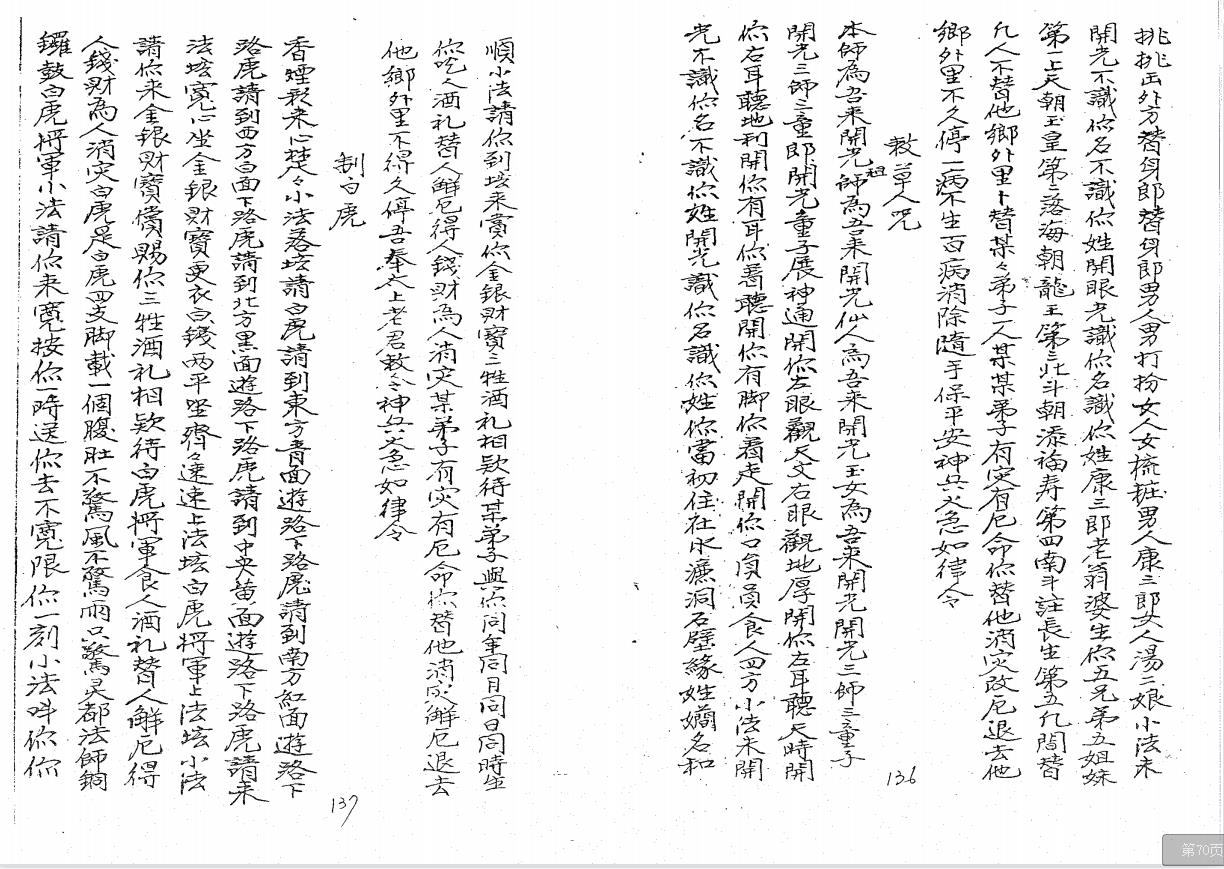 挑挑出外方替身郎替身郎男人男打扮女人女梳粧男人康三郎女人湯二娘小法未
開光不識你名不識你姓開眼光識你名識你姓康三郎老翁婆生你五兄弟五姐妹
第一上天朝玉皇第二落海朝龍王第三北斗朝添福寿第四南斗註長生第五凡間替
凡人不替他鄉外里卜替某々弟子一人某某弟子有灾有厄命你替他消灾改厄退去他
鄉外里不久停一病不生百病消除隨手保平安神兵火急如律令
敕草人咒
136
本師為吾来開光祖師為吾来開光仙人為吾来開光玉女為吾来開光開光三師三童子
開光三師三童郎開光童子展神通開你左眼觀天文右眼觀地厚開你左耳聽天時開
你右耳聽地利開你有耳你着聽開你有脚你着走開你口員員食人四方小法未開
光不識你名不識你姓開光識你名識你姓你當初住在水濂洞石壁緣姓斕名和
順小法請你到坛来賞你金銀財寶三牲酒礼相欵待某弟子與你同年同月同日同時生
你吃人酒礼替人解厄得人錢財為人消灾某弟子有灾有厄命你替他消灾解厄退去
他鄉外里不得久停吾奉太上老君敕令神兵火急如律令
制白虎
137
香煙彩来心楚々小法落坛請白虎請到東方青面遊路下路虎請到南方紅面遊路下
路虎請到西方白面下路虎請到北方黑面遊路下路虎請到中央黄面遊路下路虎請来
法坛寬心坐金銀財寶更衣白錢两平坐齊々速速上法坛白虎將軍上法坛小法
請你来金銀財寶償賜你三牲酒礼相欵待白虎將軍食人酒礼替人解厄得
人錢財為人消灾白虎是白虎四支脚載一個腹肚不驚風不驚雨只驚灵都法師銅
鑼鼓白虎將軍小法請你来寬按你時送你去不寬限你一刻小法呌你你
第70页